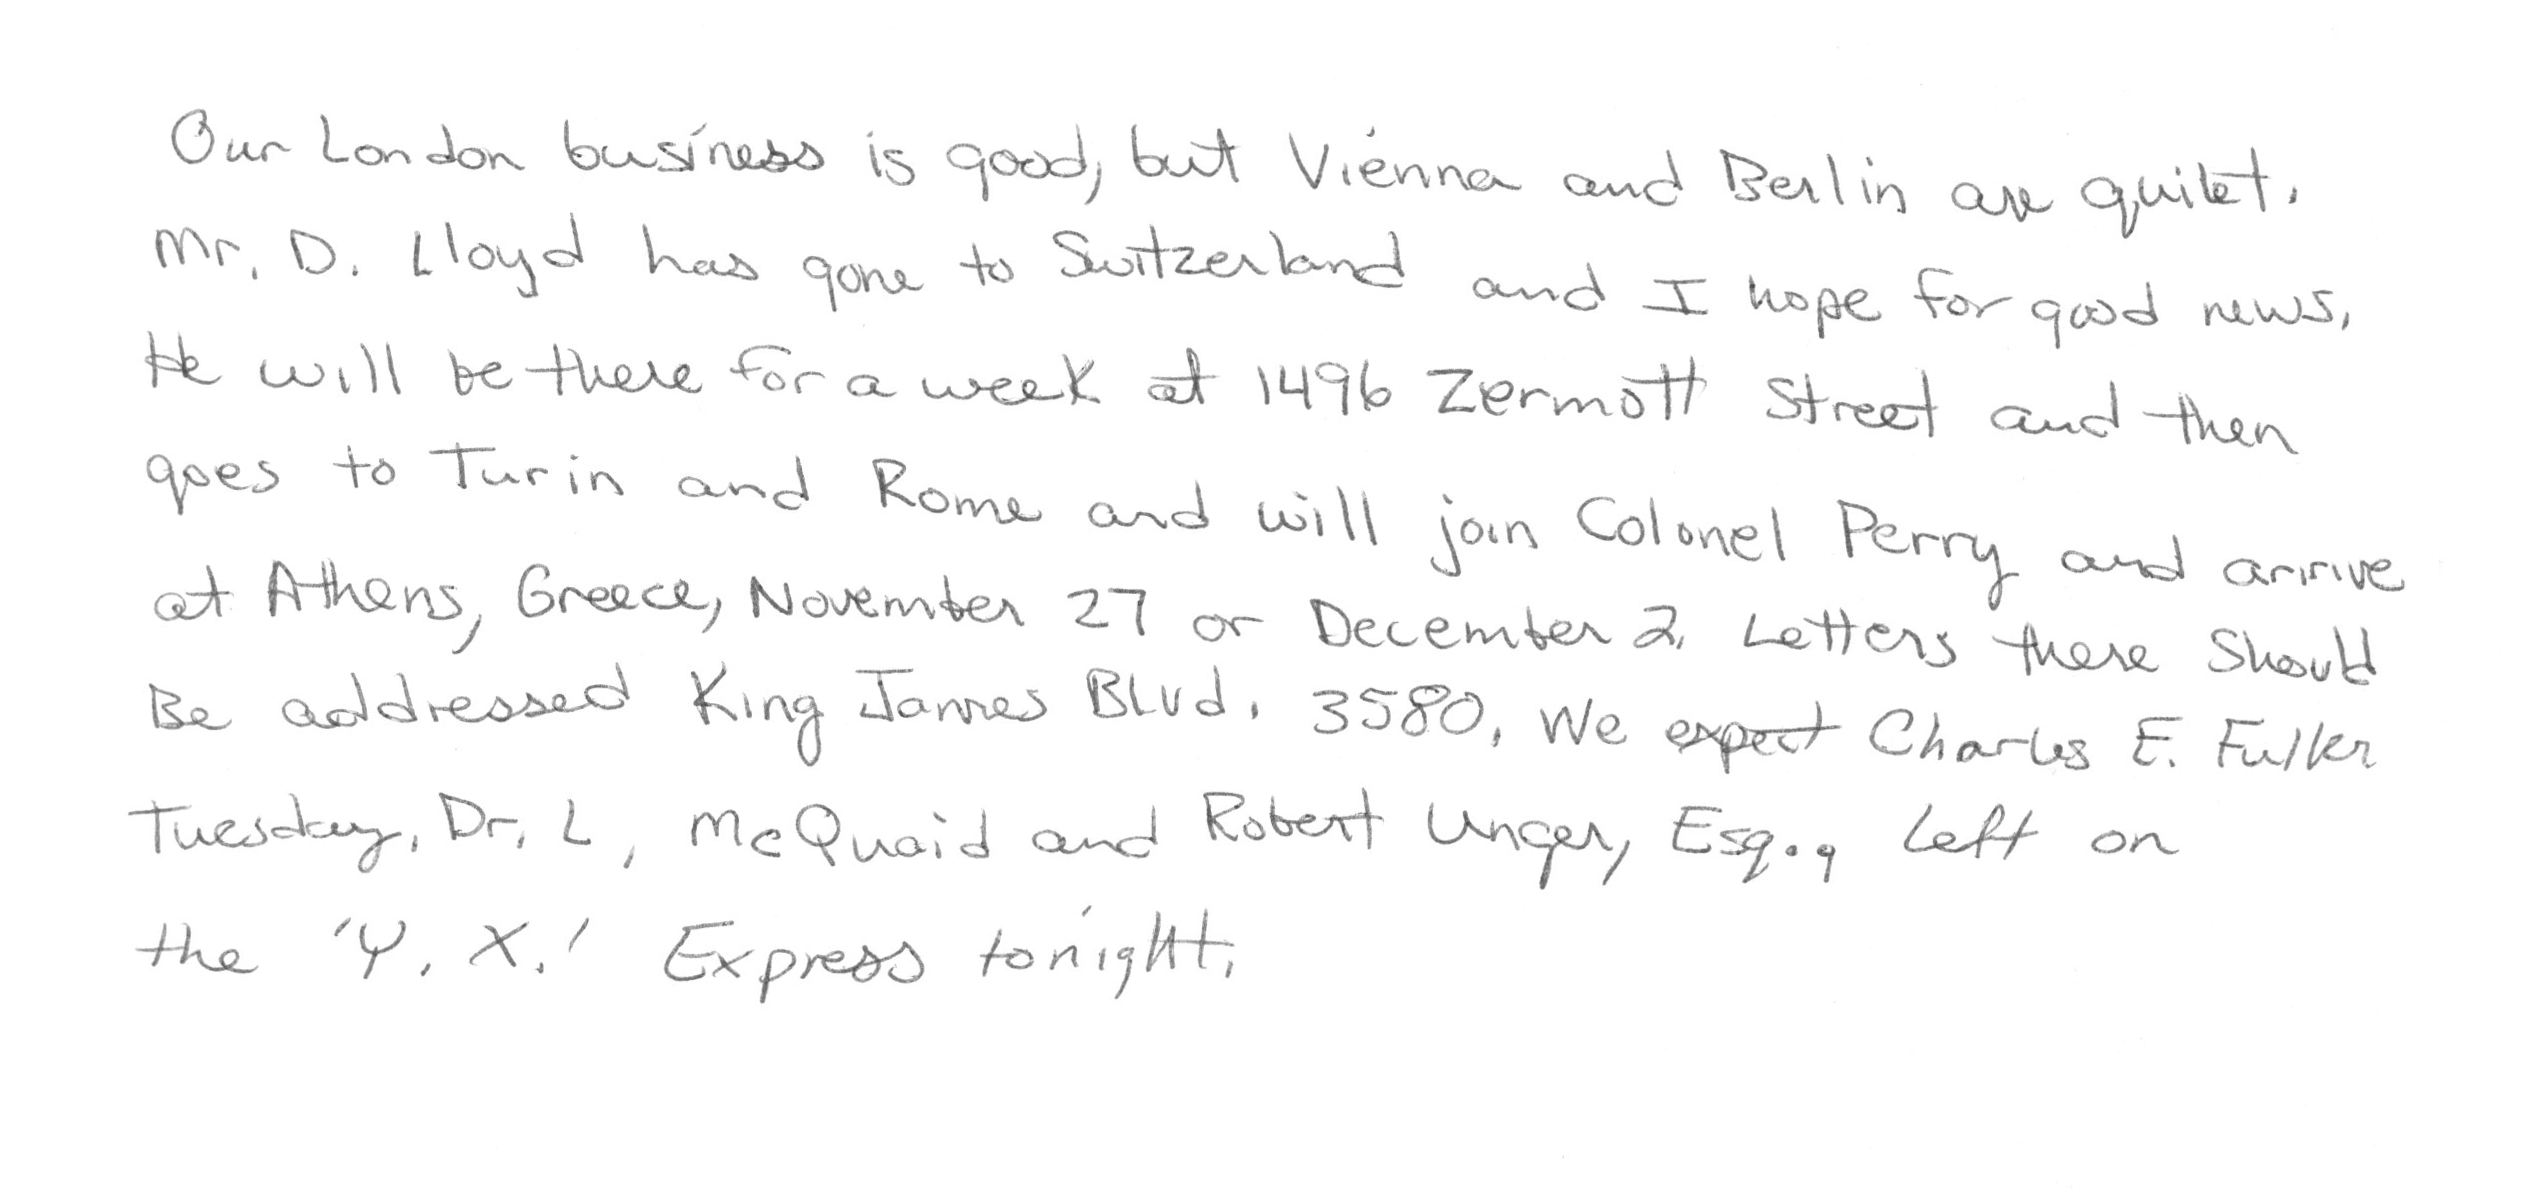 Our London business is good, but Vienna and Berlin are quiet.
Mr. D. Lloyd has gone to Switzerland and I hope for good news.
He will be there for a week at 1496 Zermott Street and then
goes to Turin and Rome and will join Colonel Perry and arrive
at Athens, Greece, November 27 or December 2. Letters there Should
Be addressed King James Blvd. 3580. We expect Charles E. Fuller
Tuesday. Dr. L, McQuaid and Robert Unger, Esq., Left on
the 'Y. X.' Express tonight.